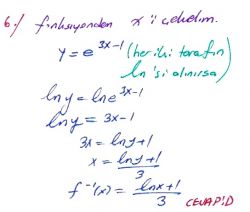 6) fonksiyondan x'i çekelim.
y = e^{3x-1} (her iki tarafın
ln'si alınırsa)
lny = lne^{3x-1}
lny = 3x-1
3x = lny+1
x = \frac{lny+1}{3}
f^{-1}(x) = \frac{lnx+1}{3}
CEVAP:D